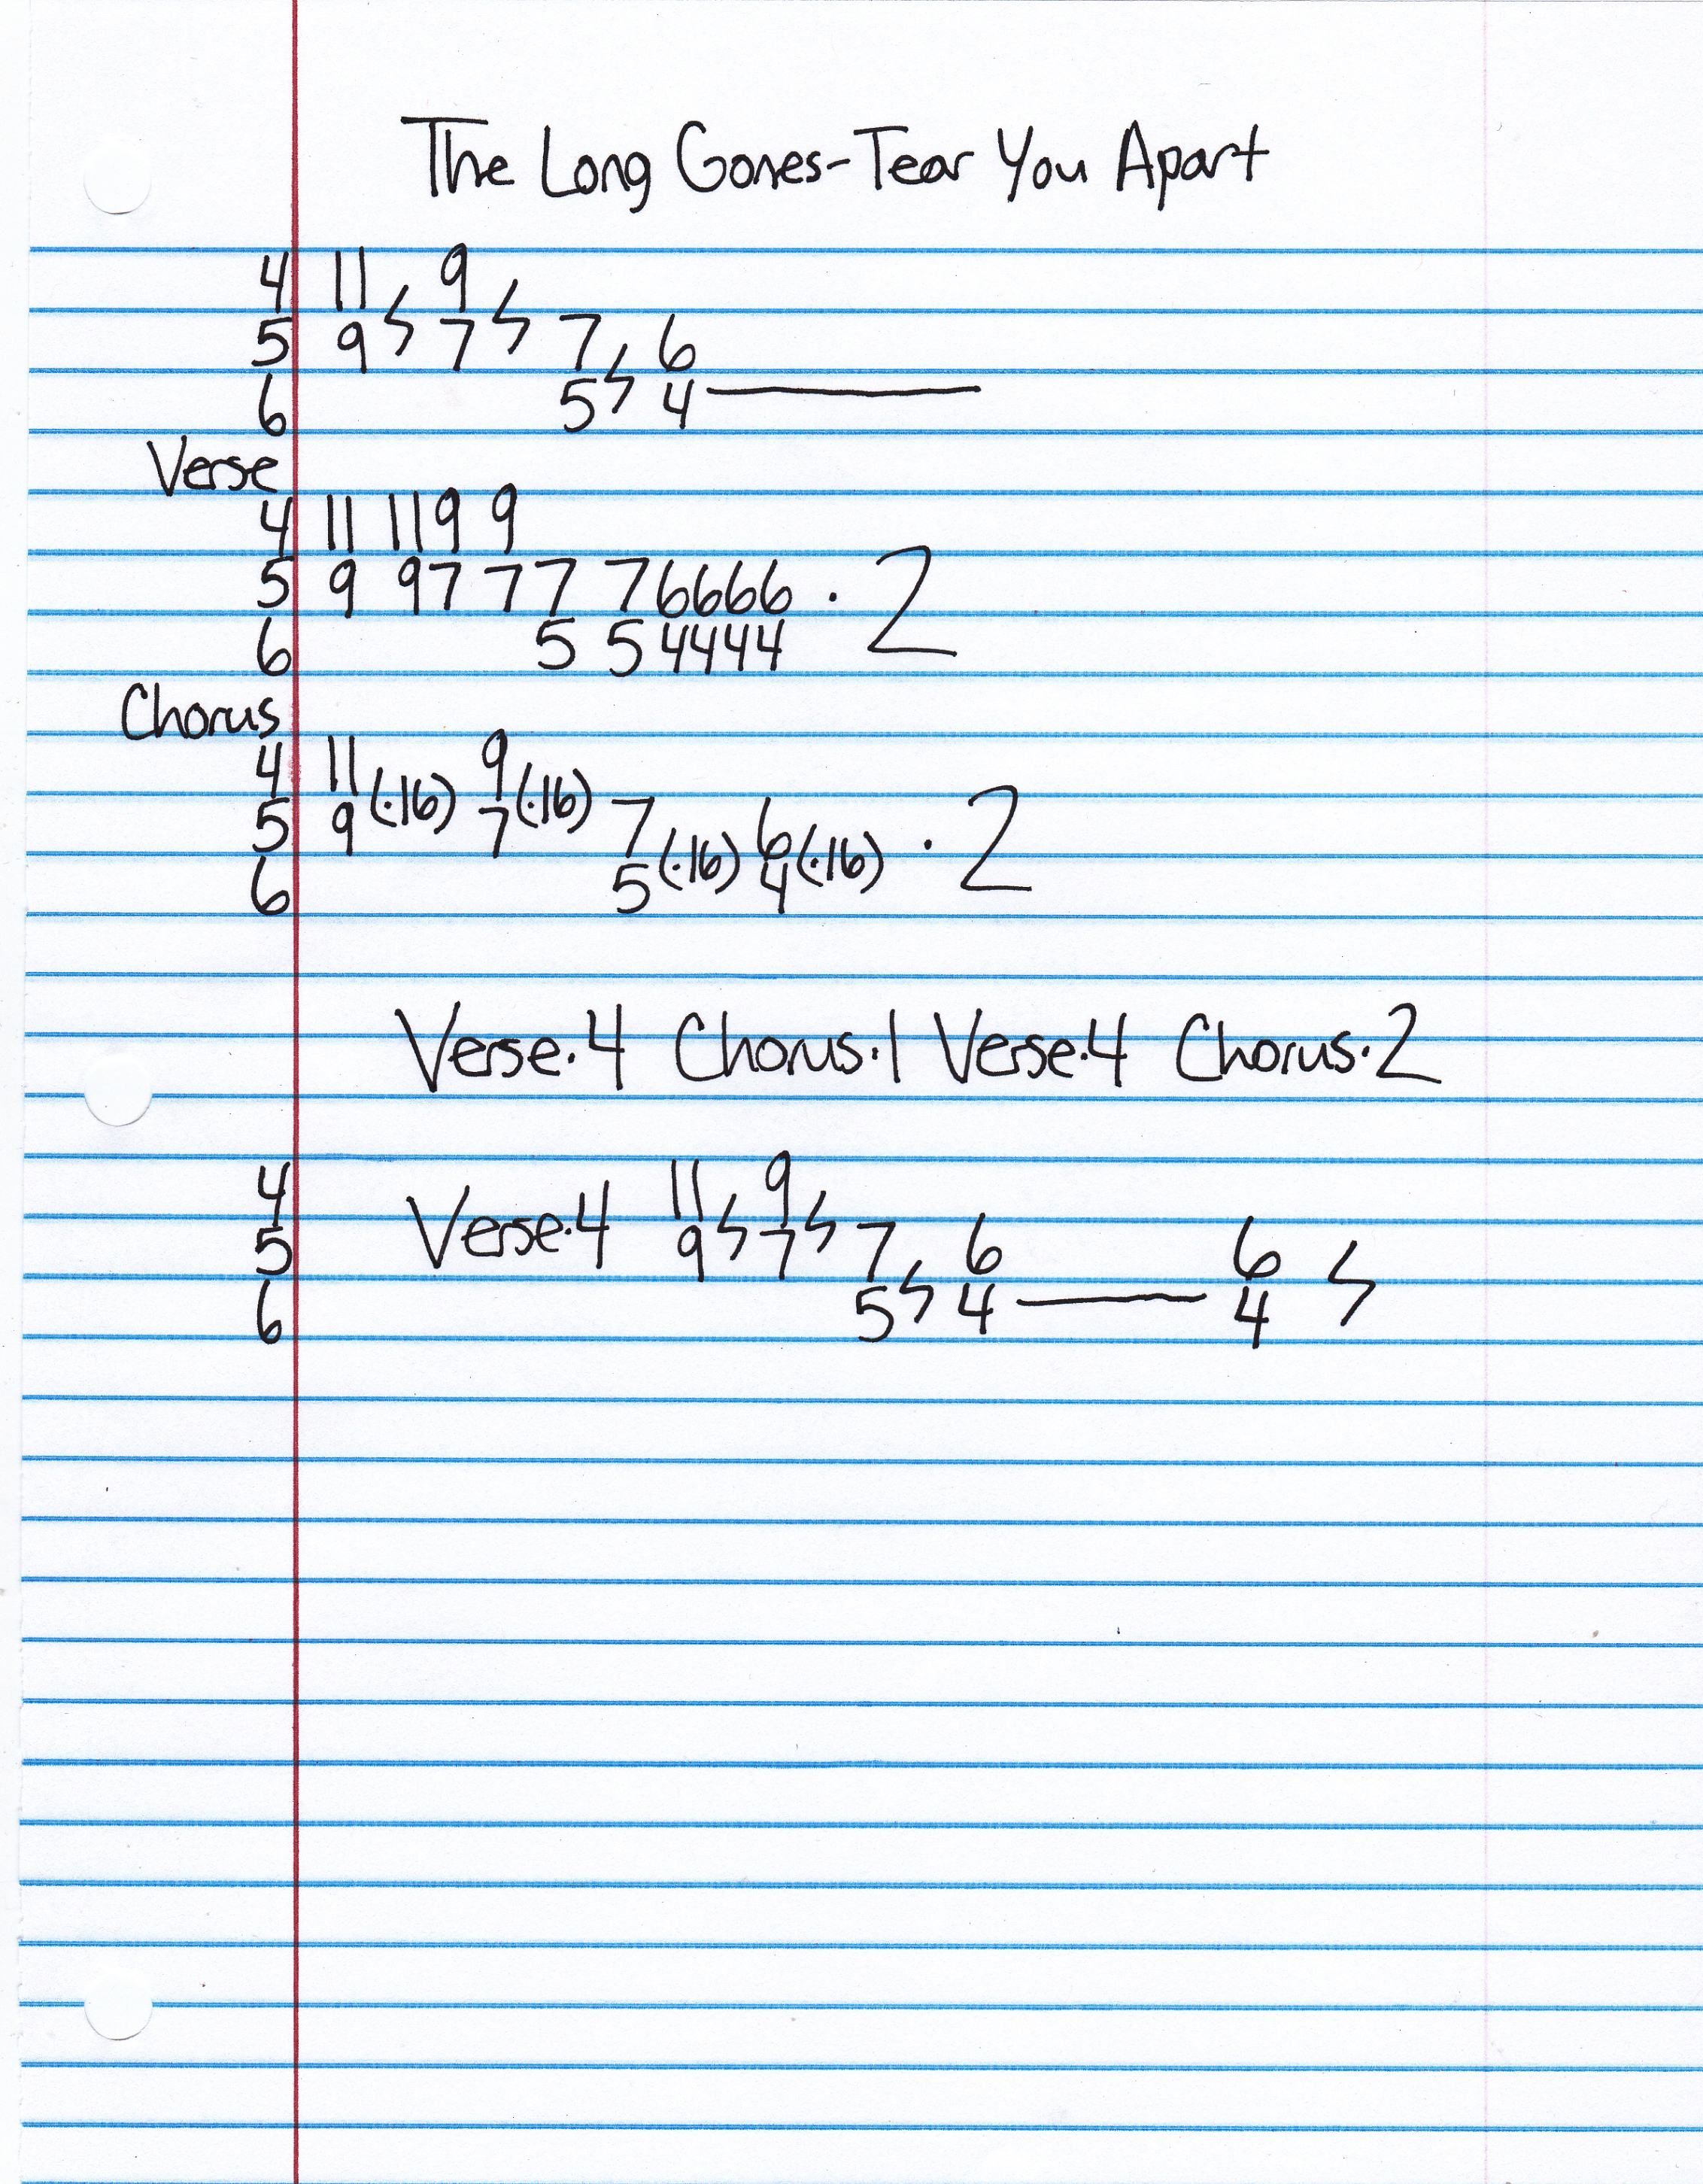 The Long Gones-Tear You Apart
4 11 9
5 9 ϟ 7 ϟ 7 6
6 5 ϟ 4 ———
Verse
4 11 11 9 9
5 9 9 7 7 7 7 6 6 6 6 · 2
6 5 5 4 4 4 4
Chorus
4 11 9
5 9 (·16) 7 (·16) 7 6 · 2
6 5 (·16) 4 (·16)
Verse·4 Chorus·1 Verse·4 Chorus·2
4 11 9
5 Verse·4 9 ϟ 7 ϟ 7 6 6
6 5 ϟ 4 ——— 4 ϟ